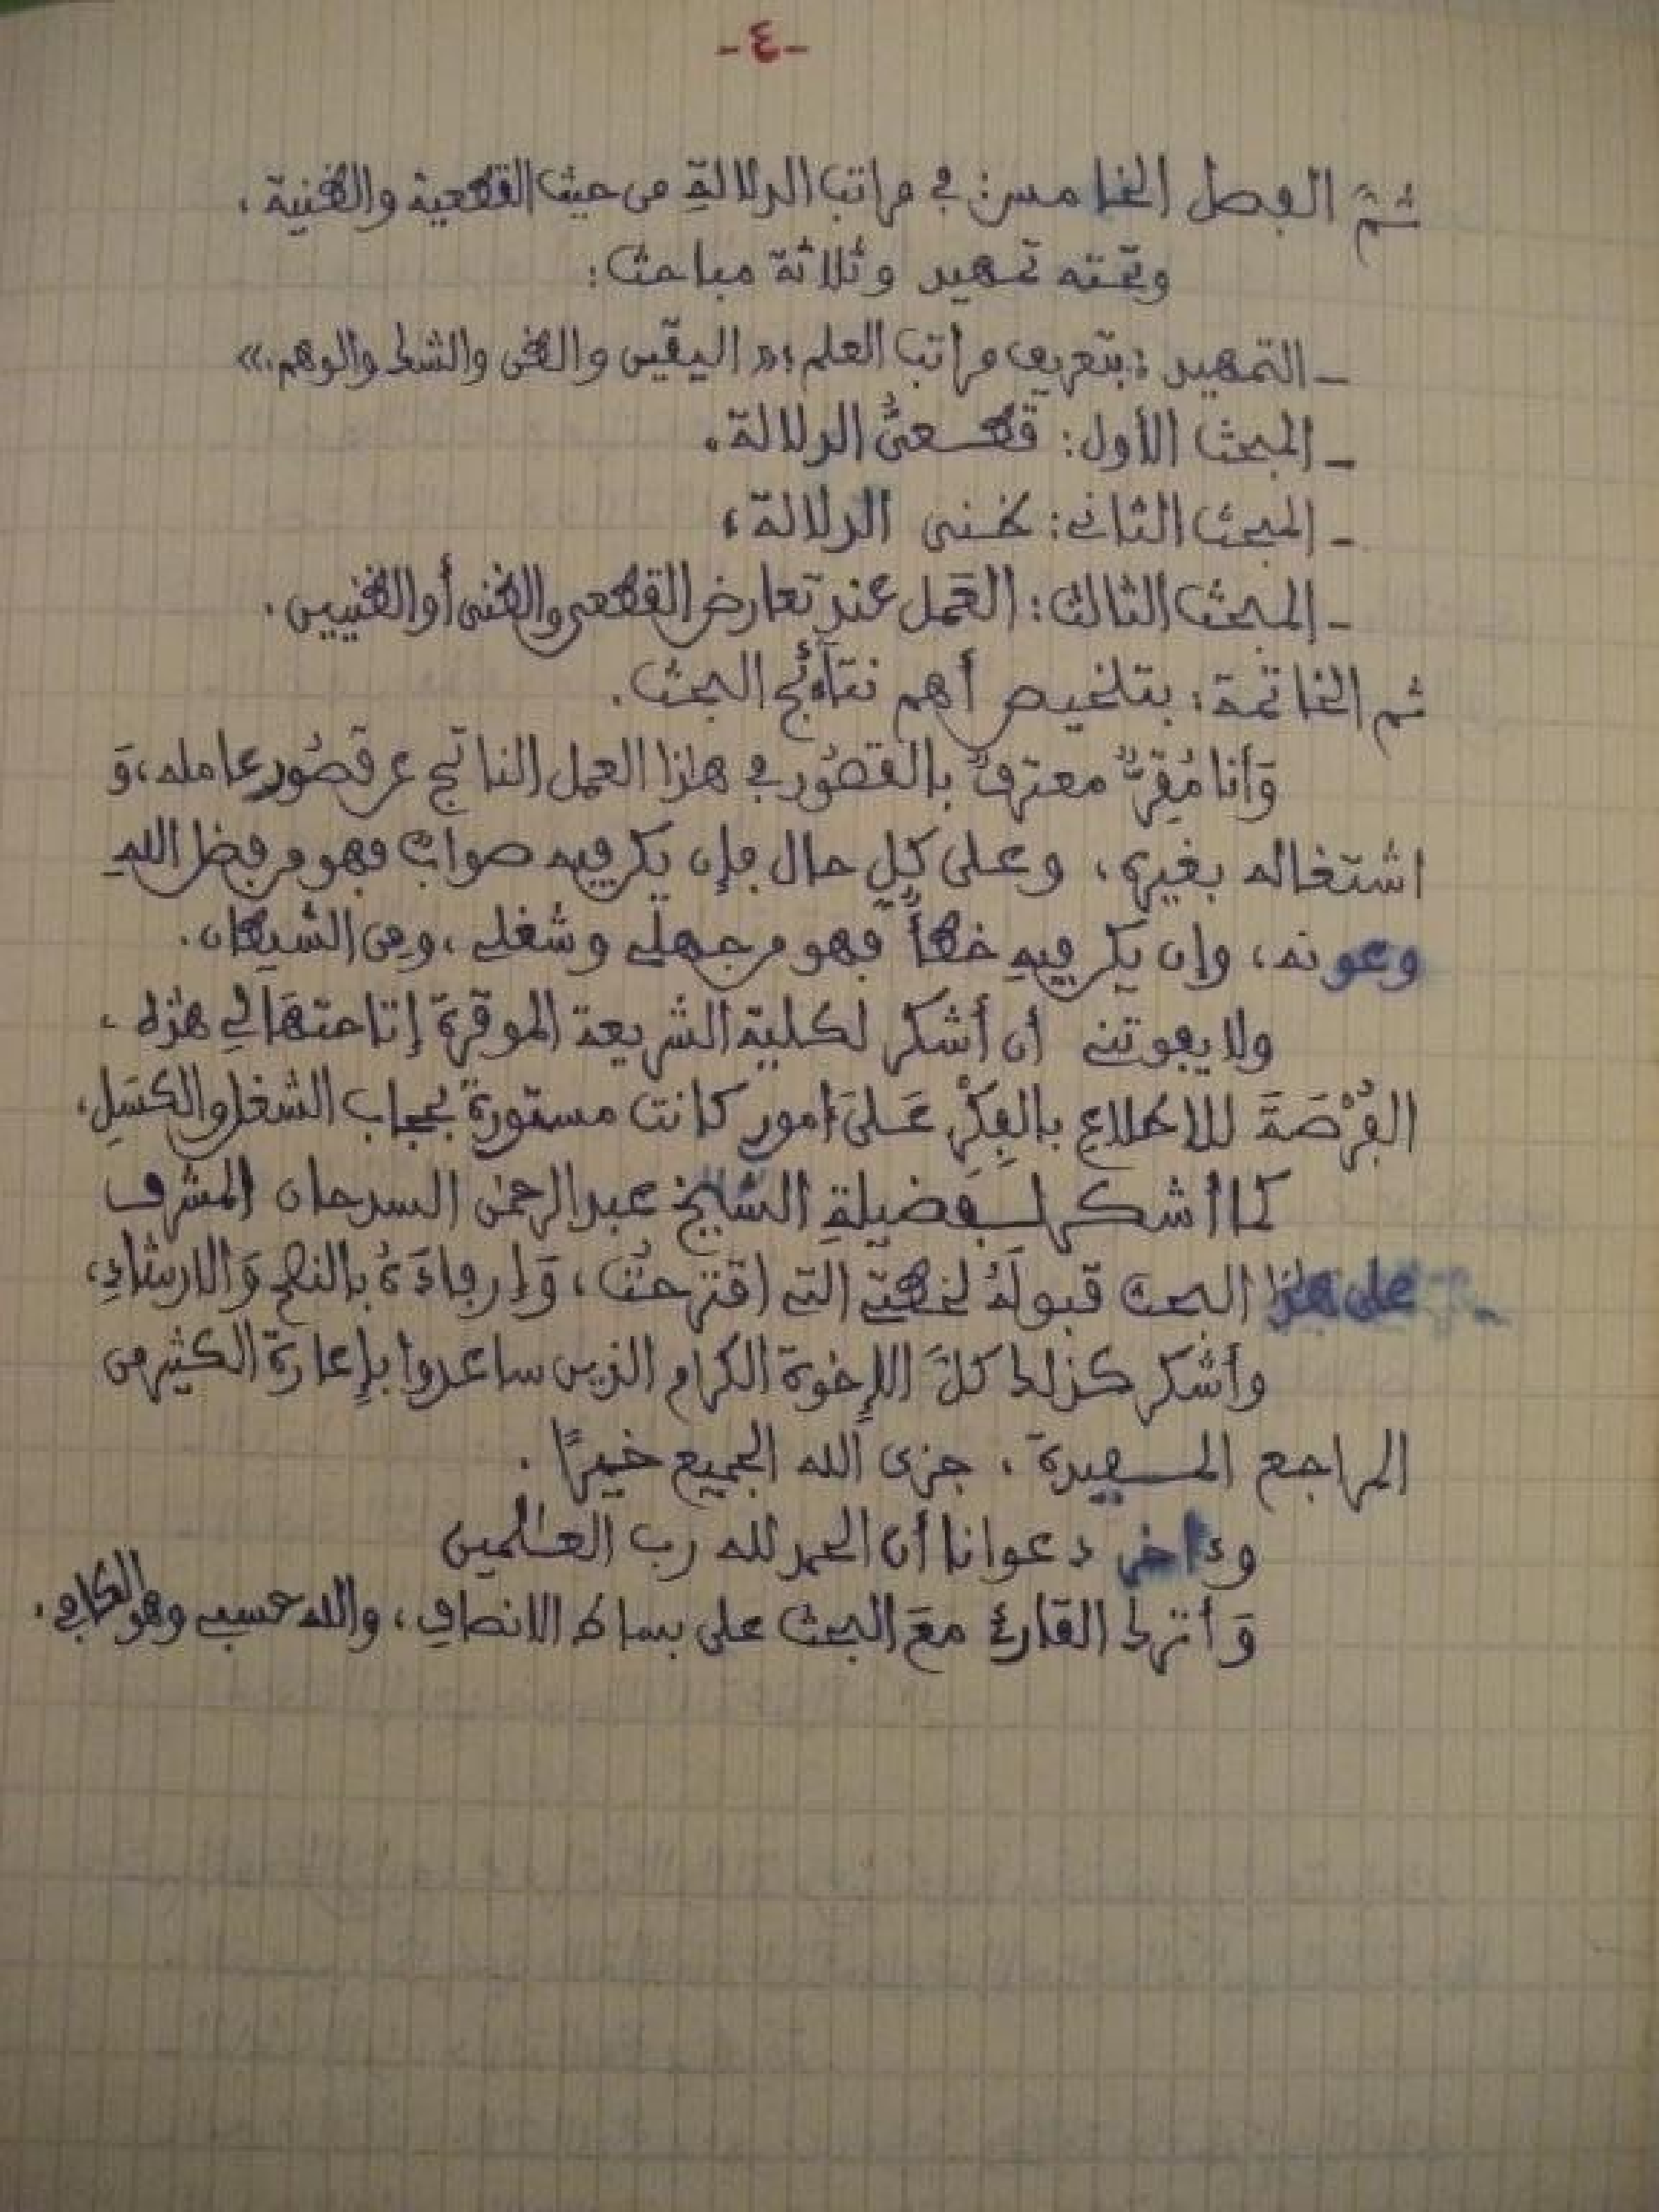 -٤-
ثمّ الفصل الخامس: في مراتب الدلالةِ من حيث القطعية والظنية.
وتحته تمهيد وثلاثة مباحث:
_ التمهيد: بتعريف مراتب العلم: «اليقين والظن والشك والوهم.»
_ المبحث الأول: قطـعيُّ الدلالة.
_ المبحث الثاني: ظـني الدلالة،
_ المبحث الثالث: العمل عند تعارض القطعي والظني أو الظنيين.
ثم الخاتمة: بتلخيص أهم نتائج البحث.
وَأنا مُقِرٌّ معترفٌ بالقصُور في هاذا العمل الناتج عن قصُور عامله، وَ
اشتغاله بغيره، وعلى كلِّ حال فإن يكن فيه صوابٌ فهو من فضل اللهِ
وعونه، وإن يكن فيهِ خطأٌ فهو من جهلي وشغلي، ومن الشيطان.
ولا يفوتني أن أشكر لكلية الشريعة الموقرة إتاحتهَا لي هذه
الفُرْصَةَ للاطلاعِ بالفِكْرِ عَـلىَ امور كانت مستورة بحجاب الشغل والكسَلِ،
كما أشكـر لـفضيلةِ الشيخ عبد الرحمن السرحان المشرف
على هاذا البحث قبولَهُ لخطتي التي اقترحتُ، وَإرفادَهُ بالنصح وَالارشادِ،
وأشكر كذلك كلَّ الإخوة الكرام الذين ساعدوا بإعارة الكثير من
المراجع المـفيدة، جزى الله الجميع خيرًا.
وءاخر دعوانا أن الحمد لله رب العـٰلمين
وَأترك القارئ معَ البحث على بساط الانصافِ، والله حسبي وهو الكافي.